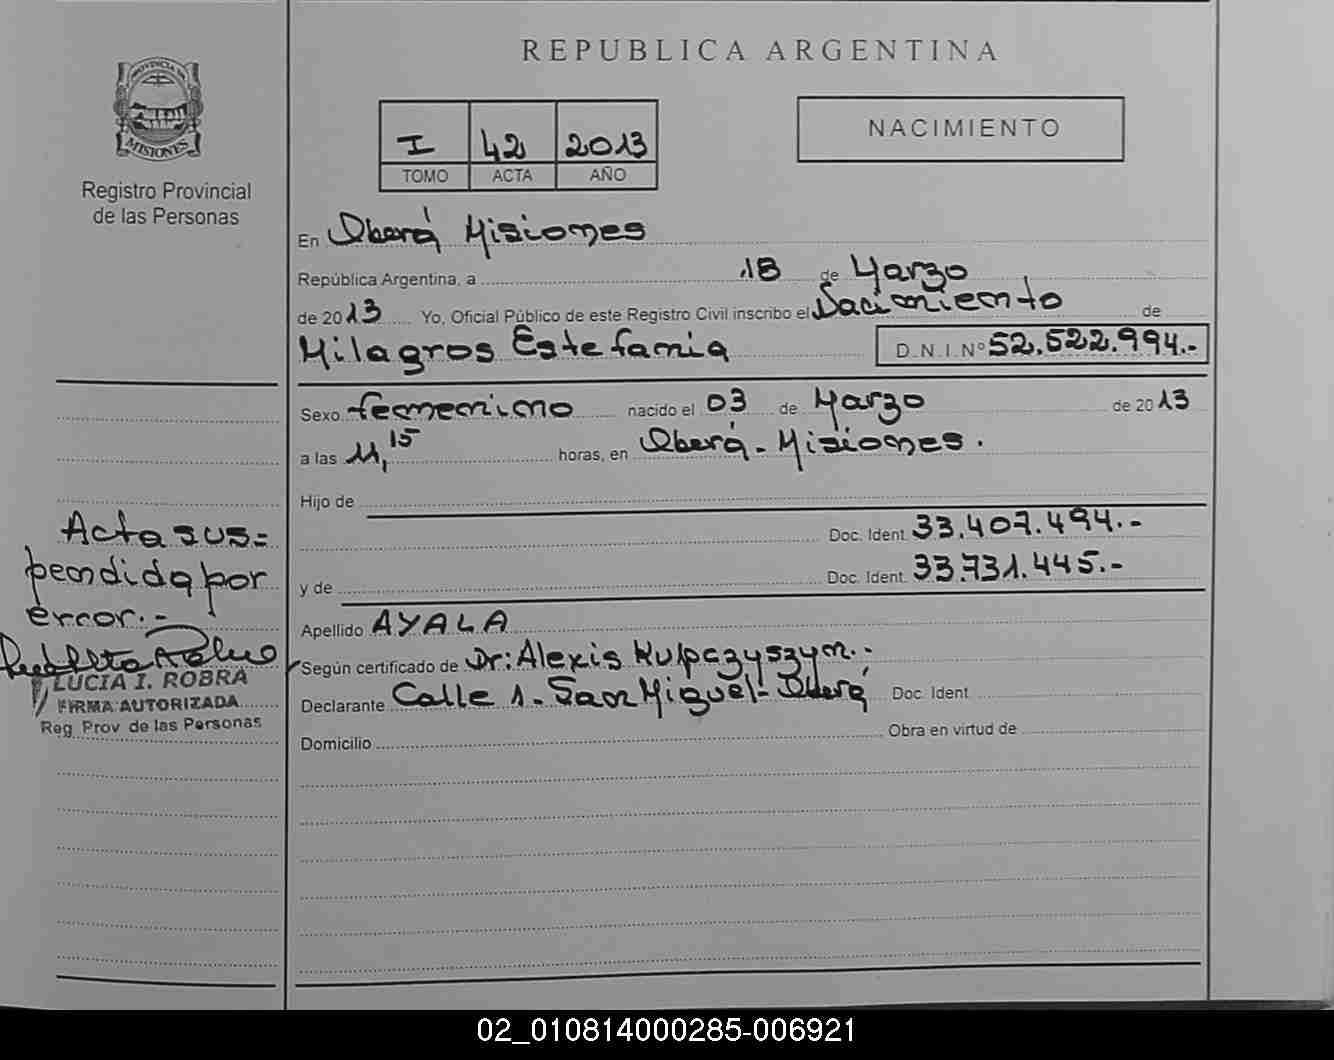 REPUBLICA ARGENTINA
PROVINCIA DE
MISIONES
Registro Provincial
de las Personas
I 42 2013
TOMO ACTA AÑO
NACIMIENTO
En Oberá Misiones
República Argentina, a 18 de Marzo
de 2013 Yo, Oficial Público de este Registro Civil inscribo el Nacimiento de
Milagros Estefania D.N.I. Nº 52.522.994.-
Sexo femenino nacido el 03 de Marzo de 2013
a las 11,15 horas, en Oberá - Misiones.
Hijo de
Doc. Ident. 33.407.494.-
y de Doc. Ident. 33.731.445.-
Apellido AYALA
Según certificado de Dr: Alexis Kulpczyszyn.-
Declarante Calle 1. San Miguel - Oberá Doc. Ident
Domicilio Obra en virtud de
Acta sus=
pendida por
error.-
LUCIA I. ROBRA
FIRMA AUTORIZADA
Reg. Prov de las Personas
02_010814000285-006921